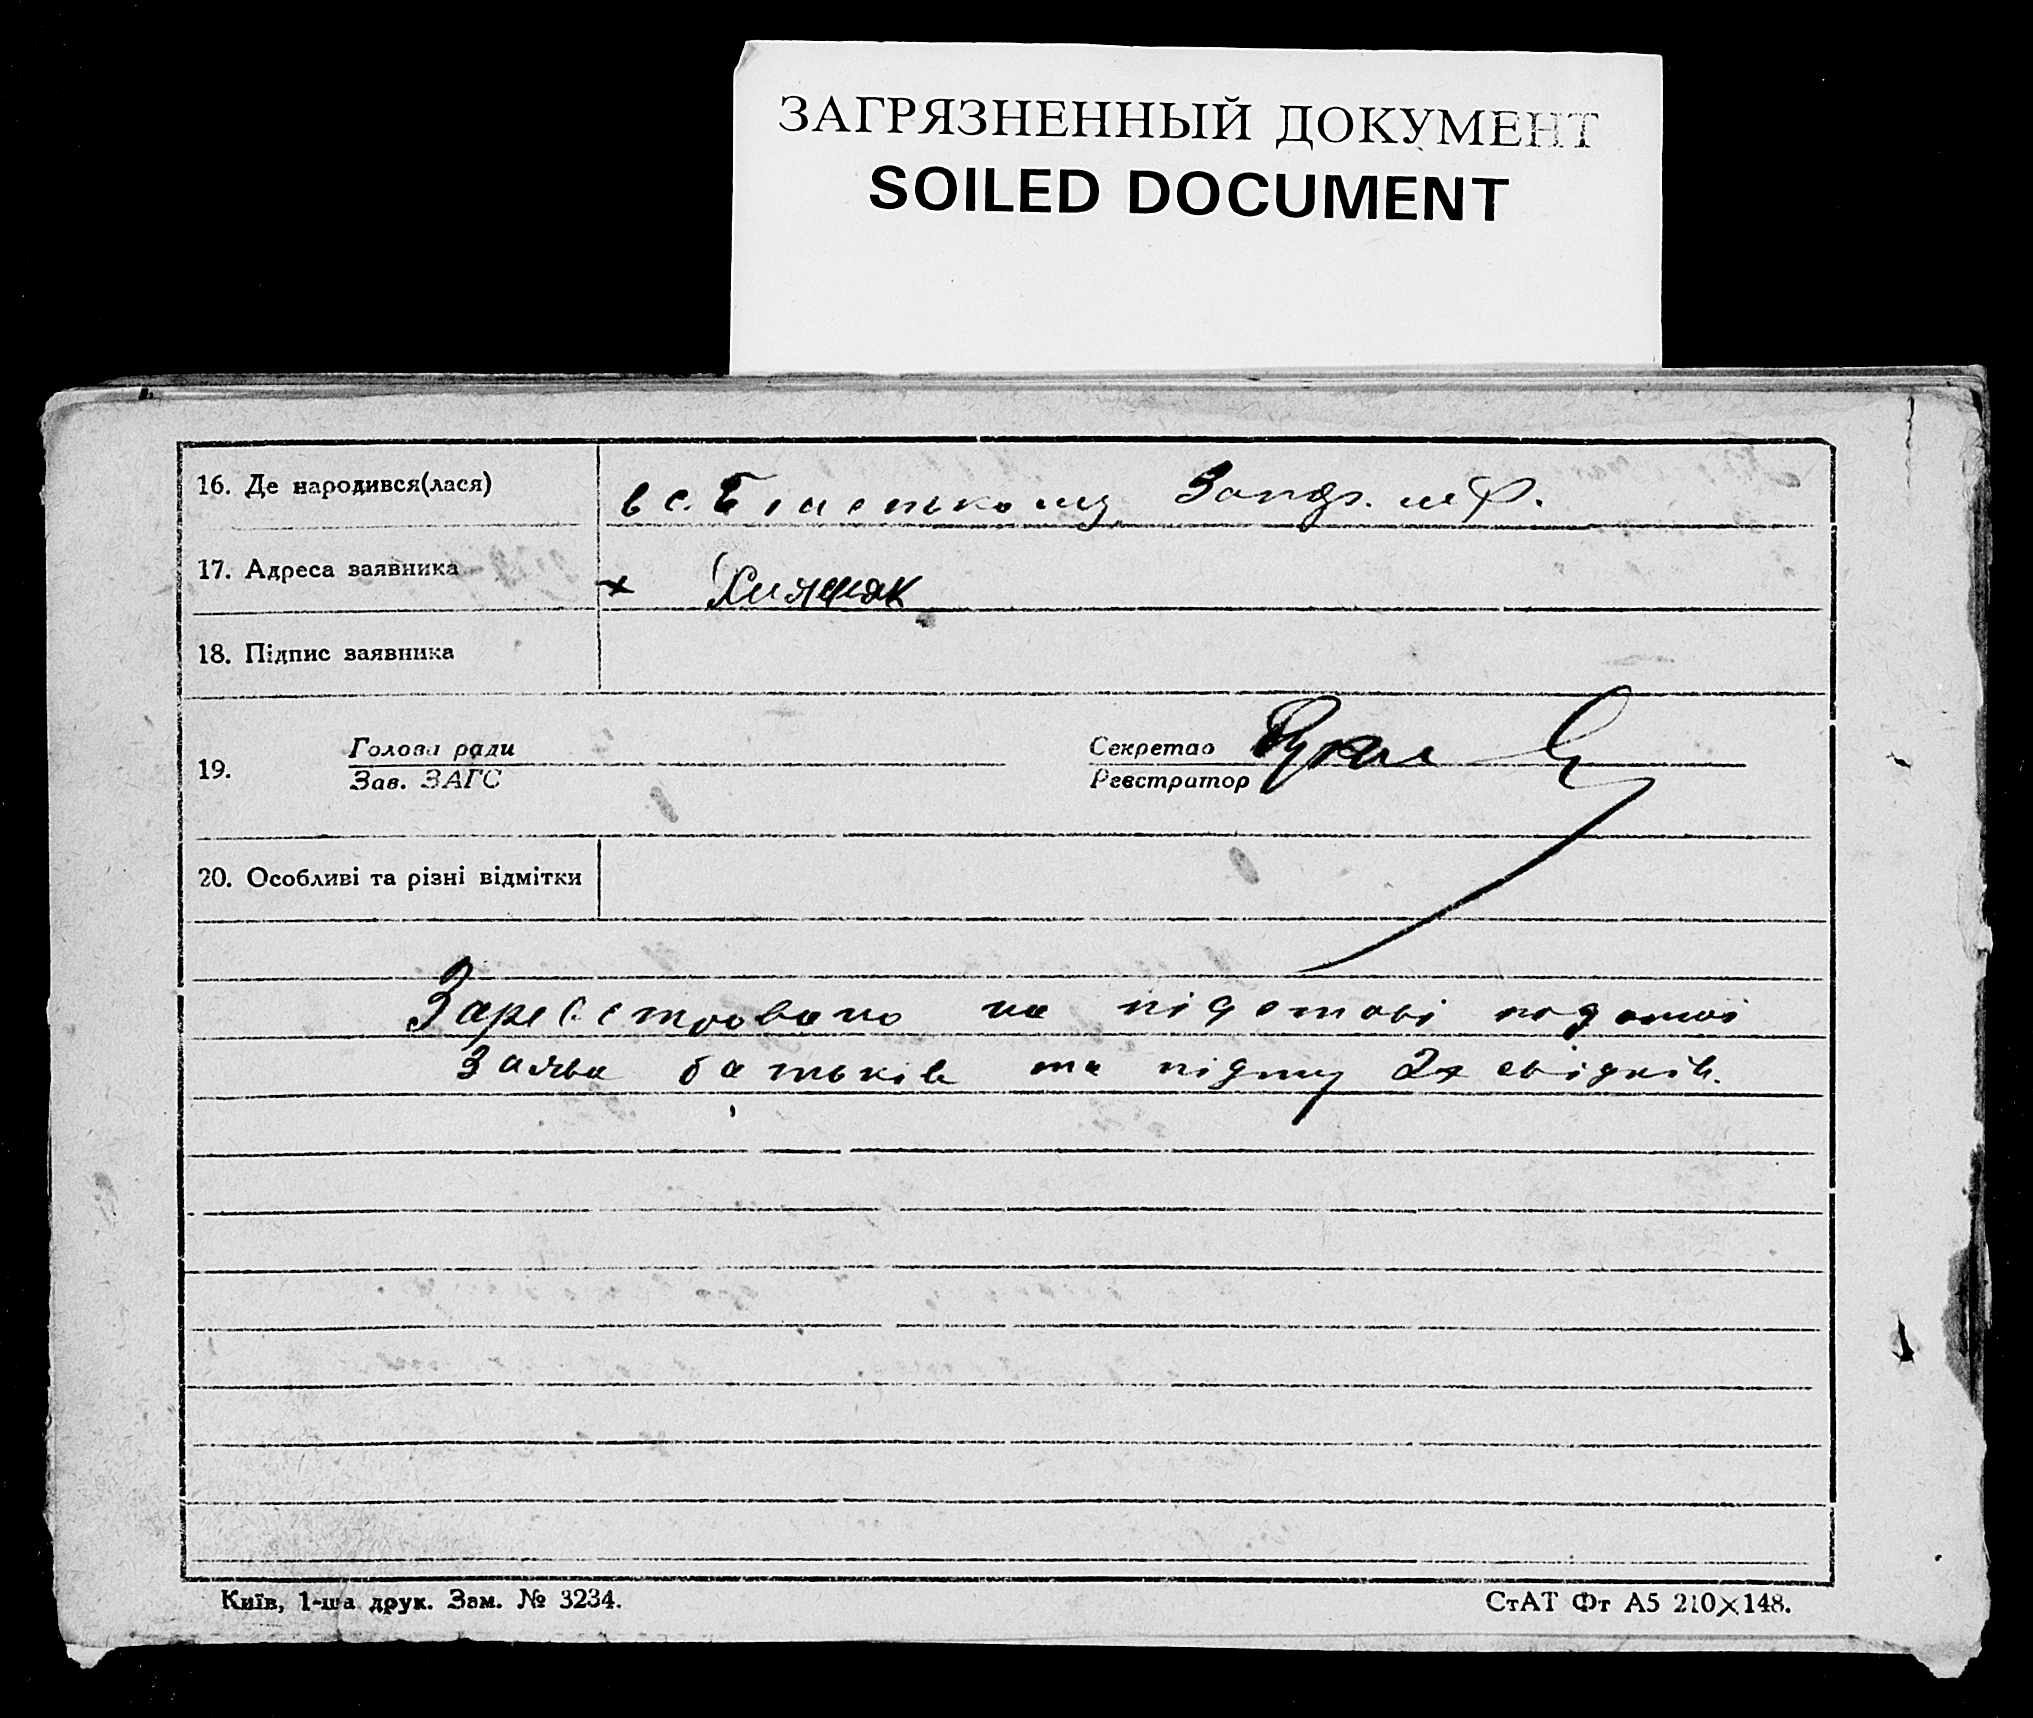 ЗАГРЯЗНЕННЫЙ ДОКУМЕНТ
SOILED DOCUMENT
16. Де народився(лася)
в с.
17. Адреса заявника
х Хижняк
18. Підпис заявника
19.
Голова ради
Зав. ЗАГС
Секретар
Реєстратор
20. Особливі та різні відмітки
Зареєстровано на підставі поданої
Заява батьків та підпису 2х свідків.
Київ, 1-ша друк. Зам. № 3234.
СтАТ Фт А5 210×148.